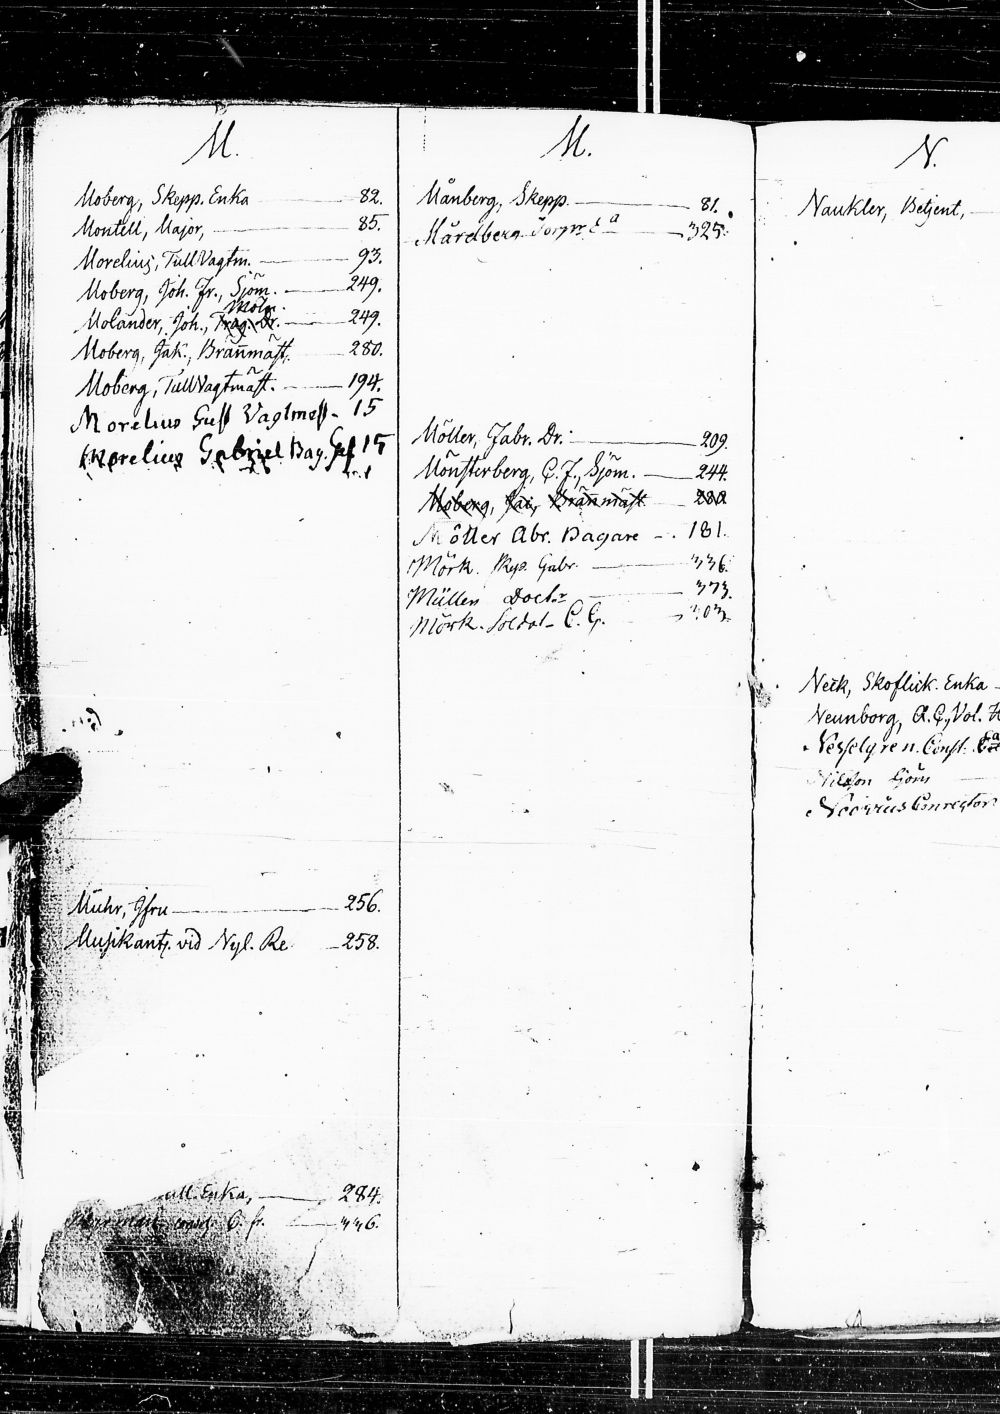 M.
Moberg, Skepp. Enka 82.
Montell, Major, 85.
Morelius, TullVagtm. 93.
Moberg, Joh. Fr., Sjöm. 249.
Möln.
Molander, Joh., Drag. Dr. 249.
Moberg, Jak., Brännmäst. 280.
Moberg, TullVagtmäst. 194.
Morelius Gust Vagtmest. 15
Morelius Gabriel Bag. Ges 15
Muhr, Jfru 256.
Musikant. vid Nyl. Re 258.
Tull. Enka, 284.
C. fr. 336.
M.
Månberg, Skepp. 81.
Mårdberg Enka 325.
Möller, Fabr. Dr. 209.
Mönsterberg, C. F., Sjöm. 244.
Moberg, Jak, Brännmäst 280
Möller Abr. Bagare 181.
Mörk. Skep. Gabr. 336.
Müller Doctr 373.
Mörk. Soldat C. G.
N.
Naukler, Betjent,
Neck, Skoflick. Enka
Neunborg, A. G., Vol.
Nesselgren. Const.
Nilsson Sjöm
Conrector